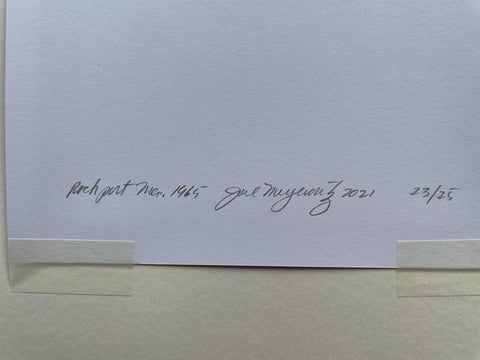 Rockport Mer. 1965 Joel Meyerowitz 2021 23/25